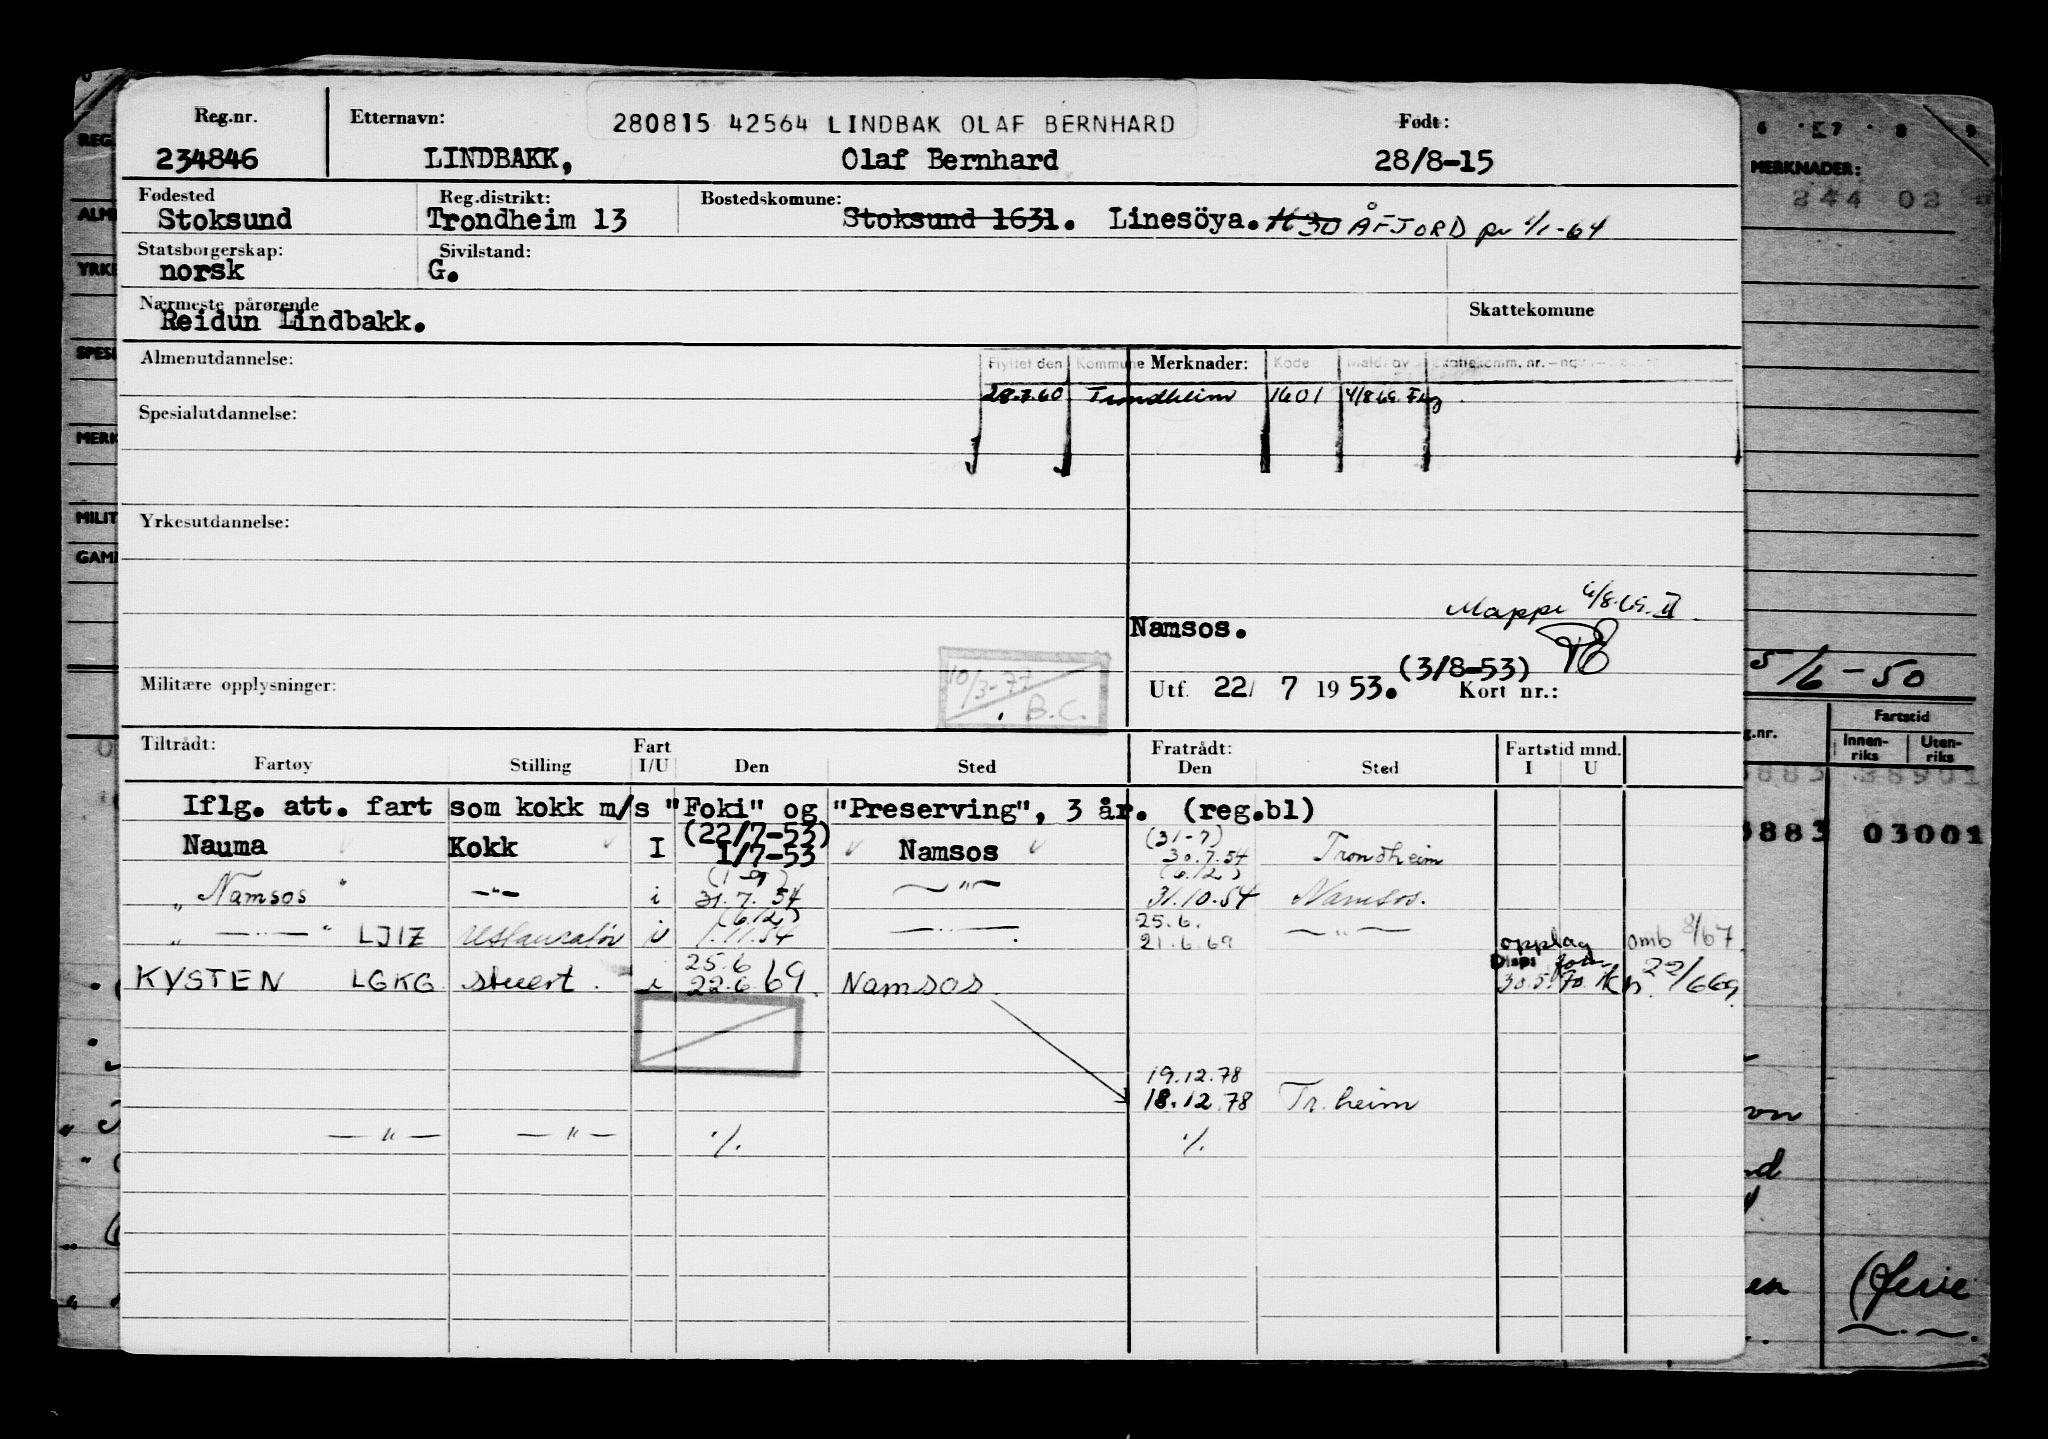 Reg.nr. Etternavn: 280815 42564 LINDBAK OLAF BERNHARD Født:
234846 LINDBAKK, Olaf Bernhard 28/8-15
Fødested Reg.distrikt: Bostedskomune:
Stoksund Trondheim 13 Stoksund 1631. Linesöya. 1630 ÅFJORD pr 1/1-64
Statsborgerskap: Sivilstand:
norsk G.
Nærmeste pårørende Skattekomune
Reidun Lindbakk.
Almenutdannelse: Flyttet den Kommune Merknader: Kode
28.7.60 Trondheim 1601 4/8 69
Spesialutdannelse:
Yrkesutdannelse:
Mappe 4/8.69. II
Namsos.
(3/8-53)
Militære opplysninger: 10/3-77 B.C. Utf. 22/ 7 1953. Kort nr.:
Tiltrådt: Fart Fratrådt: Fartstid mnd.
Fartøy Stilling I/U Den Sted Den Sted I U
Iflg. att. fart som kokk m/s "Foki" og "Preserving", 3 år. (reg.bl)
(22/7-53) (31-7)
Nauma Kokk I 1/7-53 Namsos 30.7.54 Trondheim
(1-9) (6.12)
„ Namsos " —"— i 31.7.54 —"— 31.10.54 Namsos.
(6.12) 25.6.
„ —"— " LJIZ restauratør i 1.11.54 —"—. 21.6.69 —"— opplag omb 8/67
25.6
KYSTEN LGKG stuert. i 22.6.69. Namsos. 30.5.70 22/6 69.
19.12.78
18.12.78 Tr.heim
—"— —"— ./. ./.
REG.
ALM
YRKE
SPESI
MERK
MILIT
GAM
6 . 7 . 8 9
MERKNADER:
244 02
5/6-50
Fartstid
g.nr. Innen-riks Uten-riks
8883 38901
8883 03001